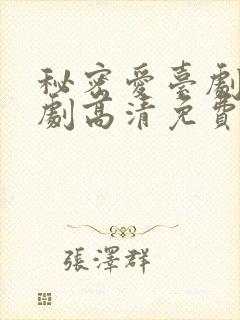 秘密愛臺劇
劇高清免費
張澤群